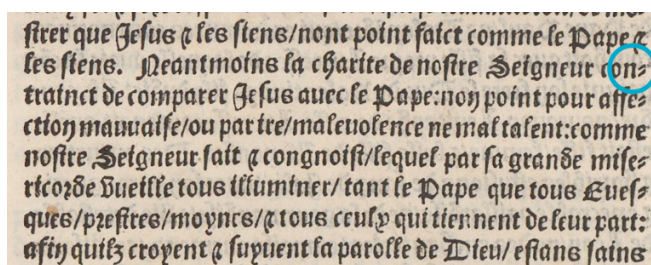 strer que Jesus ⁊ les siens/nont point faict comme le Pape ⁊
les siens. Neantmoins la charite de nostre Seigneur con⸗
trainct de comparer Jesus auec le Pape:non point pour affe⸗
ction mauuaise/ou par ire/maleuolence ne mal talent:comme
nostre Seigneur sait ⁊ congnoist/lequel par sa grande mise⸗
ricorde vueille tous illuminer/ tant le Pape que tous Eues⸗
ques/prestres/moynes/⁊ tous ceulx qui tiennent de leur part:
afin quilz croyent ⁊ suyuent la parolle de Dieu/ estans sains